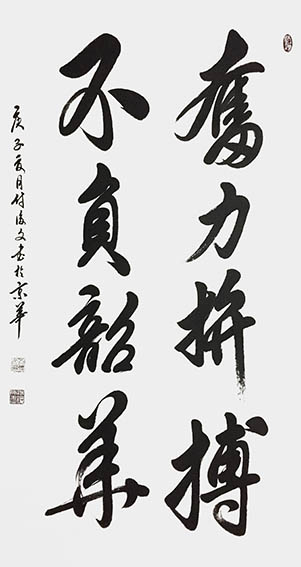 奮力拚搏
不負韶華
庚子夏月付俊文書於京華